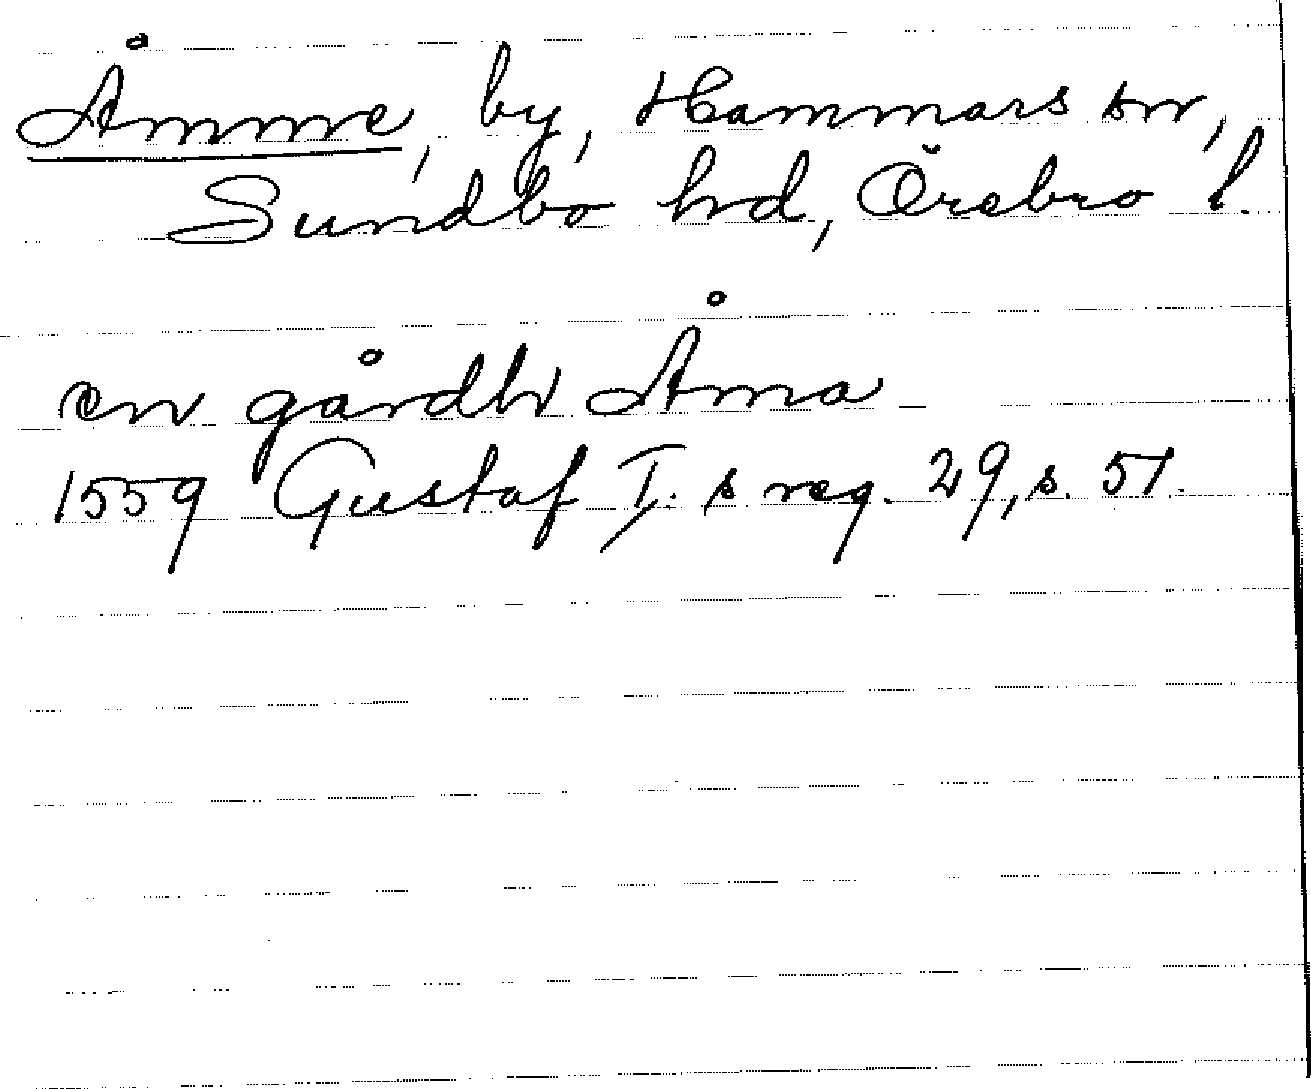 Åmme, by, Hammars sn,
Sundbo hd, Örebro l.
en gårdh Åma
1559 Gustaf I. s reg. 29, s. 51.